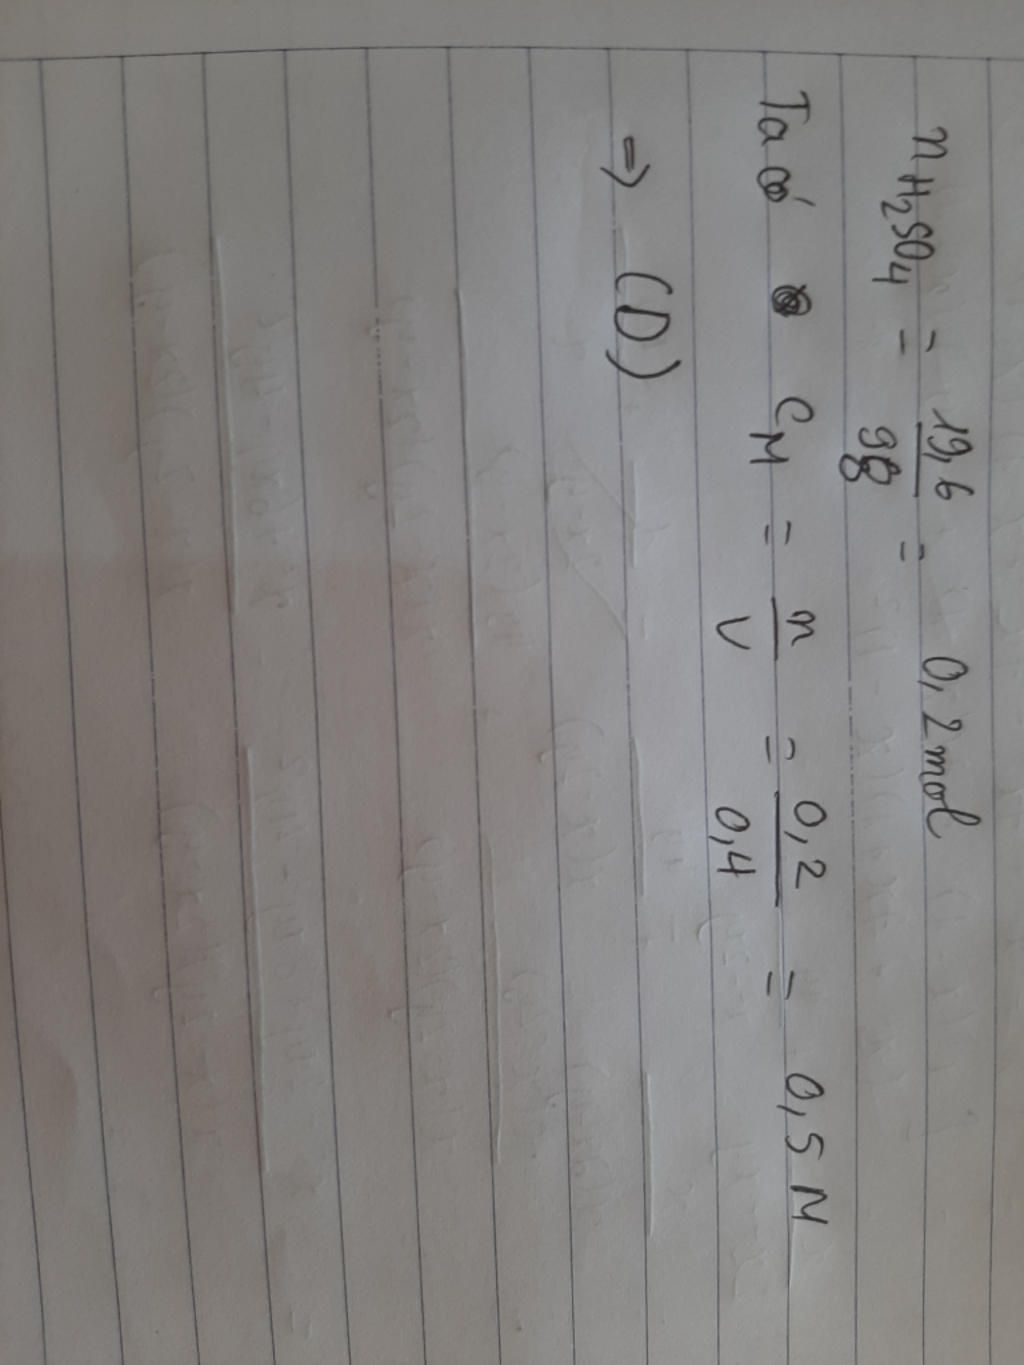 n H2SO4 = 19,6/98 = 0,2 mol
Ta có CM = n/V = 0,2/0,4 = 0,5 M
⇒ (D)